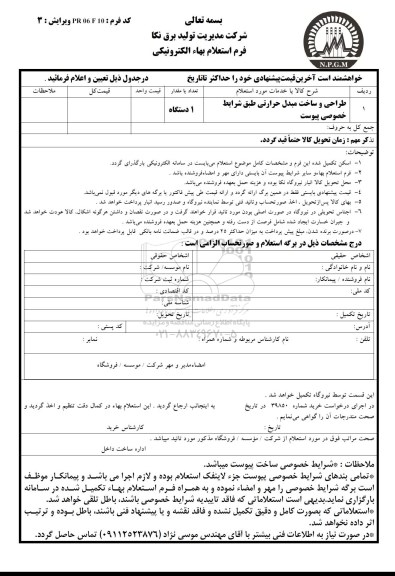 بسمه تعالی
کد فرم : PR 06 F 10 ویرایش : 3
شرکت مدیریت تولید برق نکا
فرم استعلام بهاء الکترونیکی
N.P.G.M
خواهشمند است آخرین قیمت پیشنهادی خود را حداکثر تاتاریخ درجدول ذیل تعیین و اعلام فرمائید .
ردیف شرح کالا یا خدمات مورد استعلام تعداد یا مقدار قیمت واحد قیمت کل ملاحظات
۱ طراحی و ساخت مبدل حرارتی طبق شرایط خصوصی پیوست ۱ دستگاه
جمع کل به حروف:
تذکر مهم : زمان تحویل کالا حتماً قید گردد.
توضیحات:
۱- اسکن تکمیل شده این فرم و مشخصات کامل موضوع استعلام می‌بایست در سامانه الکترونیکی بارگذاری گردد.
۲- فرم استعلام بهاءو سایر شرایط پیوست آن بایستی دارای مهر و امضاءفروشنده باشد .
۳- محل تحویل کالا انبار نیروگاه نکا بوده و هزینه حمل بعهده فروشنده می‌باشد.
۴- قیمت پیشنهادی بایستی فقط در همین برگ ارائه گردد و ارائه قیمت طی پیش فاکتور یا برگه های دیگر مورد قبول نمی‌باشد.
۵- بهای کالا پس‌ازتحویل ، اخذ صورتحساب و تائید فنی توسط نماینده نیروگاه و صدور رسید انبار پرداخت خواهد شد .
۶- اجناس تحویلی در نیروگاه در صورت اصلی بودن مورد تائید قرار خواهند گرفت و در صورت نقصان و داشتن هرگونه اشکال، کالا عودت خواهد شد
و جبران خسارت ایجاد شده شامل فرصت از دست رفته و همچنین هزینه حمل بعهده فروشنده می‌باشد .
۷-درصورت برنده شدن، مبلغ پیش پرداخت به میزان حداکثر ۲۵ درصد و در قالب ضمانت نامه بانکی قابل پرداخت خواهد بود .
درج مشخصات ذیل در برگه استعلام و صورتحساب الزامی است :
اشخاص حقیقی اشخاص حقوقی
نام و نام خانوادگی : نام موسسه/ شرکت :
نام فروشنده / پیمانکار: شماره ثبت شرکت :
کد ملی: کد اقتصادی :
شناسه ملی:
تاریخ تکمیل : تاریخ تحویل:
آدرس: کد پستی :
تلفن : نام کارشناس مربوطه و شماره همراه : نمابر :
امضاءمدیر و مهر شرکت / موسسه / فروشگاه
ParsNamadData
۰۲۱-۸۸۳۴۹۶۷۰-۵
این قسمت توسط نیروگاه تکمیل خواهد شد .
در اجرای درخواست خرید شماره ۳۹۸۵۰ در تاریخ به اینجانب ارجاع گردید . این استعلام بهاء در کمال دقت تنظیم و اخذ گردید و
صحت مندرجات آن را گواهی می‌نمایم .
تاریخ : کارشناس خرید
صحت مراتب فوق در مورد استعلام از شرکت / مؤسسه / فروشگاه مذکور مورد تائید میباشد .
اداره ساخت داخل
ملاحظات : *شرایط خصوصی ساخت پیوست میباشد.
*تمامی بندهای شرایط خصوصی پیوست جزء لاینفک استعلام بوده و لازم اجرا می باشـد و پیمانکـار موظـف
است برگه شرایط خصوصی را مهر و امضاء نموده و به همـراه فـرم اسـتعلام بهـاء تکمیـل شـده در سـامانه
بارگزاری نماید.بدیهی است استعلاماتی که فاقد تاییدبه شرایط خصوصی باشند، باطل تلقی خواهد شد.
*استعلاماتی که بصورت کامل و دقیق تکمیل نشده و فاقد نقشه و یا پیشنهاد فنی باشند، باطل بـوده و ترتیـب
اثر داده نخواهد شد.
*در صورت نیاز به اطلاعات فنی بیشتر با آقای مهندس موسی نژاد (۰۹۱۱۲۵۲۳۸۷۶) تماس حاصل گردد.